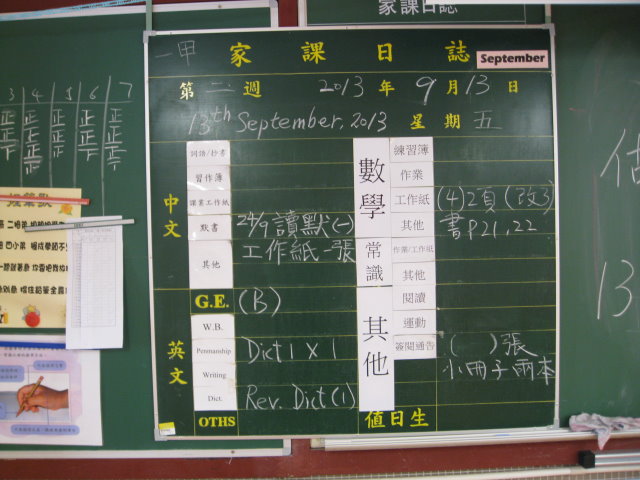 家課日誌
一甲 家課日誌 September
第二週 2013年9月13日
13th September, 2013 星期五
中文
詞語/抄書
習作簿
課業工作紙
默書 24/9 讀默(一)
其他 工作紙一張
G.E. (B)
英文
W.B.
Penmanship Dict 1 X 1
Writing
Dict. Rev. Dict (1)
OTHS
數學
練習簿
作業
工作紙 (4)2頁 (改3)
其他 書P21,22
常識
作業/工作紙
其他
其他
閱讀
運動
簽閱通告 ( )張
小冊子兩本
值日生
3 4 5 6 7
正 正 正 正 正
13